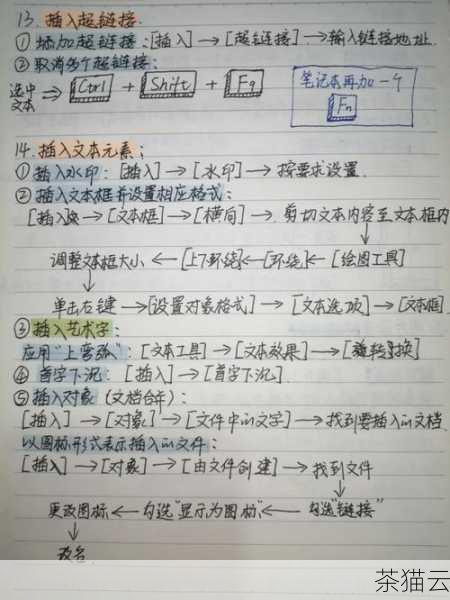 13. 插入超链接.
① 添加超链接:[插入]→[超链接].→输入链接地址.
② 取消多个超链接:
选中文本 ⇒ Ctrl + Shift + F9
笔记本再加一个
Fn
14. 插入文本元素;
① 插入水印:[插入]→[水印]→按要求设置.
② 插入文本框并设置相应格式:
[插入]→[文本框]→[横向]→剪切文本内容至文本框内
调整文本框大小←[上下环绕]←[环绕]←[绘图工具]
单击右键→[设置对象格式]→[文本选项]→[文本框]
③ 插入艺术字:
应用"上弯弧":[文本工具]→[文本效果]→[转换]
④ 首字下沉:[插入]→[首字下沉].
⑤ 插入对象(文档合并):
[插入]→[对象]→[文件中的文字]→找到要插入的文档.
以图标形式表示插入的文件:
[插入]→[对象]→[由文件创建]→找到文件
更改图标←勾选"显示为图标"←勾选"链接"
改名
茶猫云